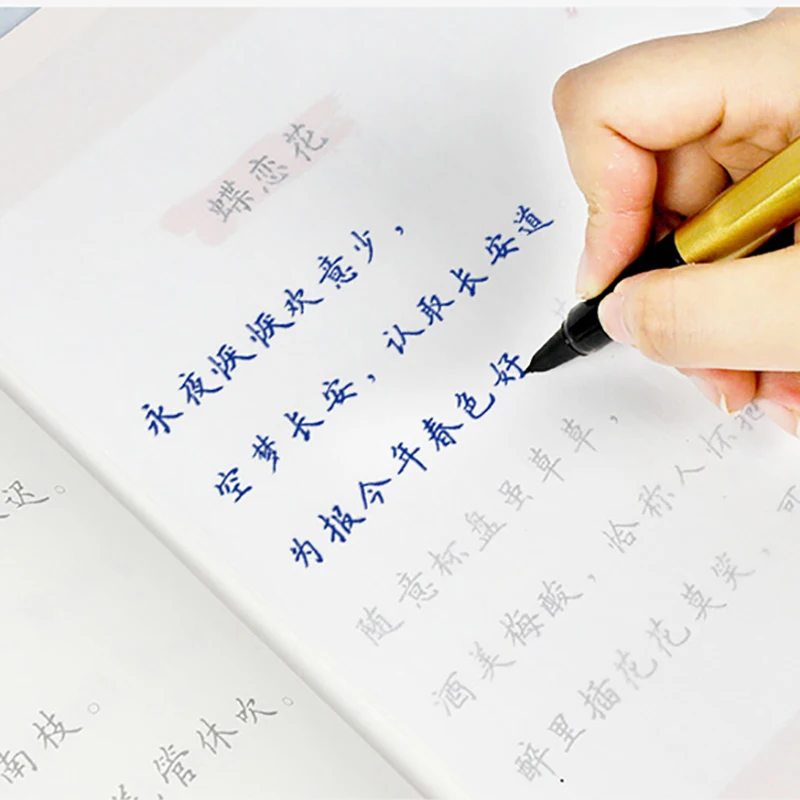 蝶恋花
永夜恹恹欢意少，
空梦长安，认取长安道
为报今年春色好
随意杯盘虽草草，
酒美梅酸，恰称人怀抱
醉里插花花莫笑，可
迟。
南枝。
管休吹。